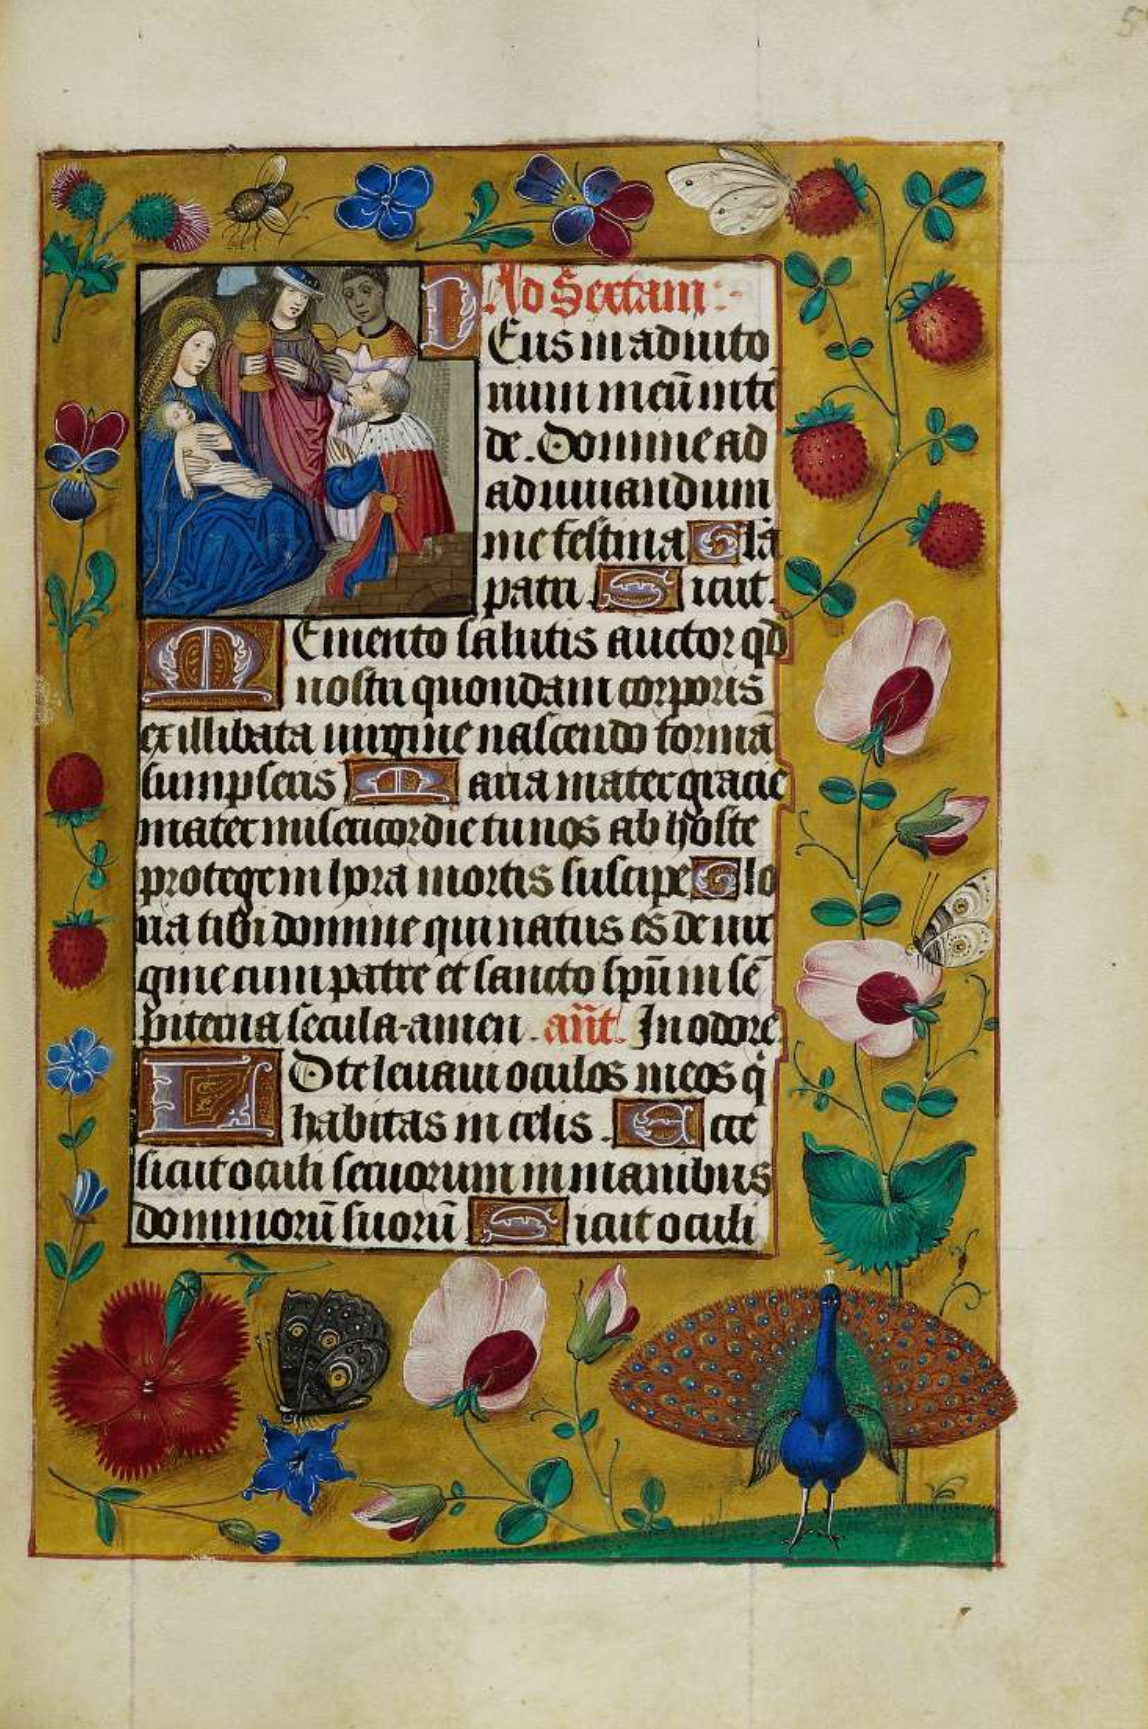 Ad Sextam:
DEus in adiuto
rium meū intē
de. Domine ad
adiuuandum
me festina Glā
patri. Sicut.
MEmento salutis auctor qd
nostri quondam corporis
ex illibata uirgine nascendo formā
sumpseris Maria mater gracie
mater misericordie tu nos ab hoste
protege in hora mortis suscipe Glo
ria tibi domine qui natus es de uir
gine cum patre et sancto spū in sē
piterna secula. amen. añt. In odore
AD te leuaui oculos meos q
habitas in celis. Ecce
sicut oculi seruorum in manibus
dominorū suorū Sicut oculi